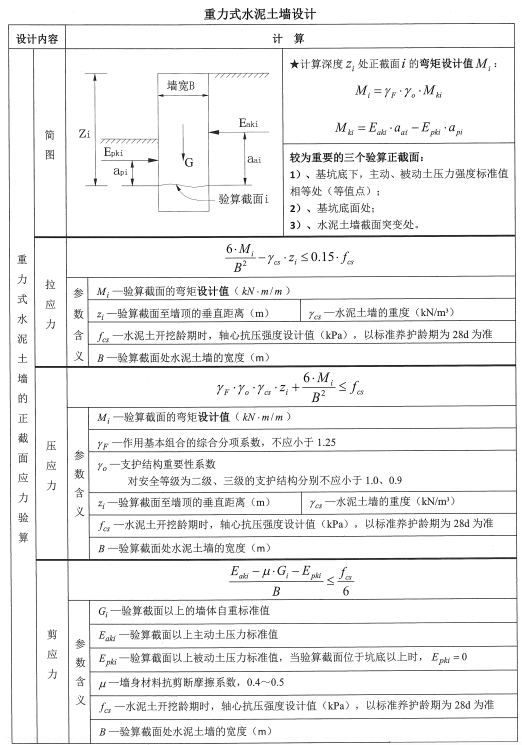 重力式水泥土墙设计
设计内容
计 算
重力式水泥土墙的正截面应力验算
简图
墙宽B
Zi
Eaki
Epki
aai
api
G
验算截面i
★计算深度 z_i 处正截面 i 的弯矩设计值 M_i：
M_i = γ_F · γ_o · M_ki
M_ki = E_aki · a_ai − E_pki · a_pi
较为重要的三个验算正截面：
1）、基坑底下，主动、被动土压力强度标准值
相等处（等值点）；
2）、基坑底面处；
3）、水泥土墙截面突变处。
拉应力
6·M_i / B² − γ_cs · z_i ≤ 0.15 · f_cs
参数含义
M_i —验算截面的弯矩设计值（kN·m/m）
z_i —验算截面至墙顶的垂直距离（m）
γ_cs —水泥土墙的重度（kN/m³）
f_cs —水泥土开挖龄期时，轴心抗压强度设计值（kPa），以标准养护龄期为 28d 为准
B —验算截面处水泥土墙的宽度（m）
压应力
γ_F · γ_o · γ_cs · z_i + 6·M_i / B² ≤ f_cs
参数含义
M_i —验算截面的弯矩设计值（kN·m/m）
γ_F —作用基本组合的综合分项系数，不应小于 1.25
γ_o —支护结构重要性系数
对安全等级为二级、三级的支护结构分别不应小于 1.0、0.9
z_i —验算截面至墙顶的垂直距离（m）
γ_cs —水泥土墙的重度（kN/m³）
f_cs —水泥土开挖龄期时，轴心抗压强度设计值（kPa），以标准养护龄期为 28d 为准
B —验算截面处水泥土墙的宽度（m）
剪应力
(E_aki − μ·G_i − E_pki) / B ≤ f_cs / 6
参数含义
G_i —验算截面以上的墙体自重标准值
E_aki —验算截面以上主动土压力标准值
E_pki —验算截面以上被动土压力标准值，当验算截面位于坑底以上时，E_pki = 0
μ —墙身材料抗剪断摩擦系数，0.4～0.5
f_cs —水泥土开挖龄期时，轴心抗压强度设计值（kPa），以标准养护龄期为 28d 为准
B —验算截面处水泥土墙的宽度（m）